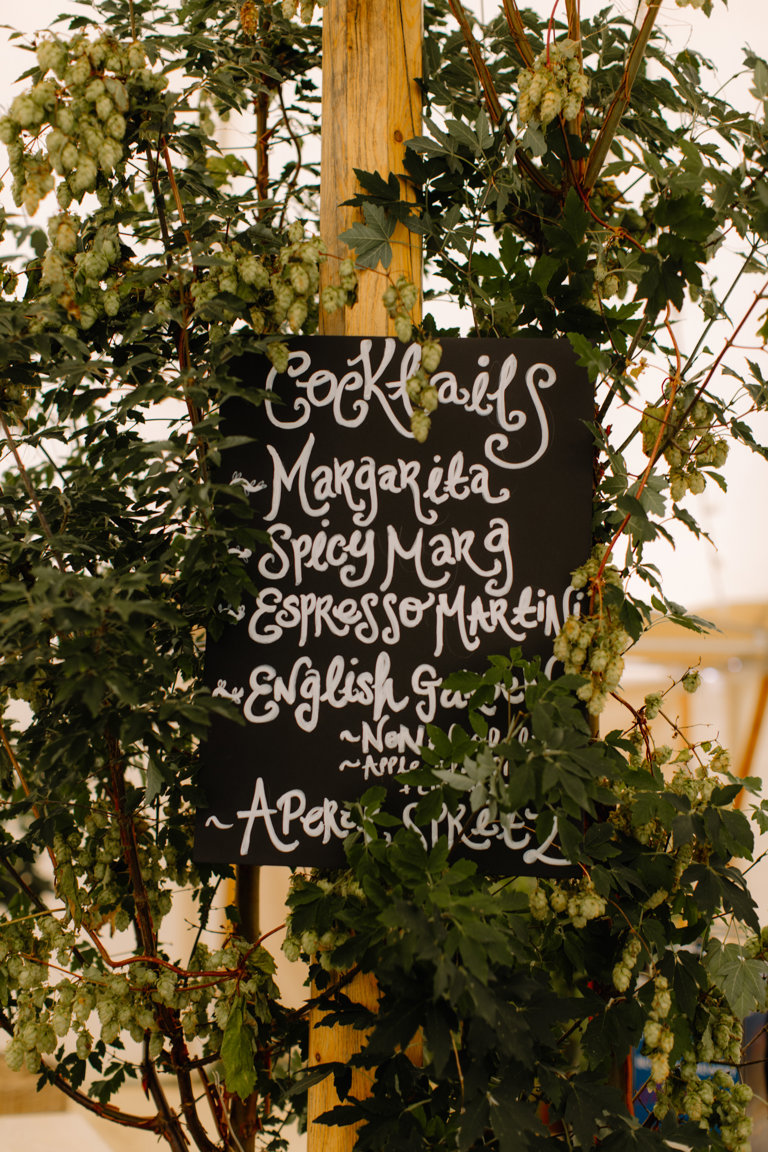 Cocktails
~ Margarita
~ Spicy Marg
~ Espresso Martini
~ English
~
~
~ Aperol Spritz